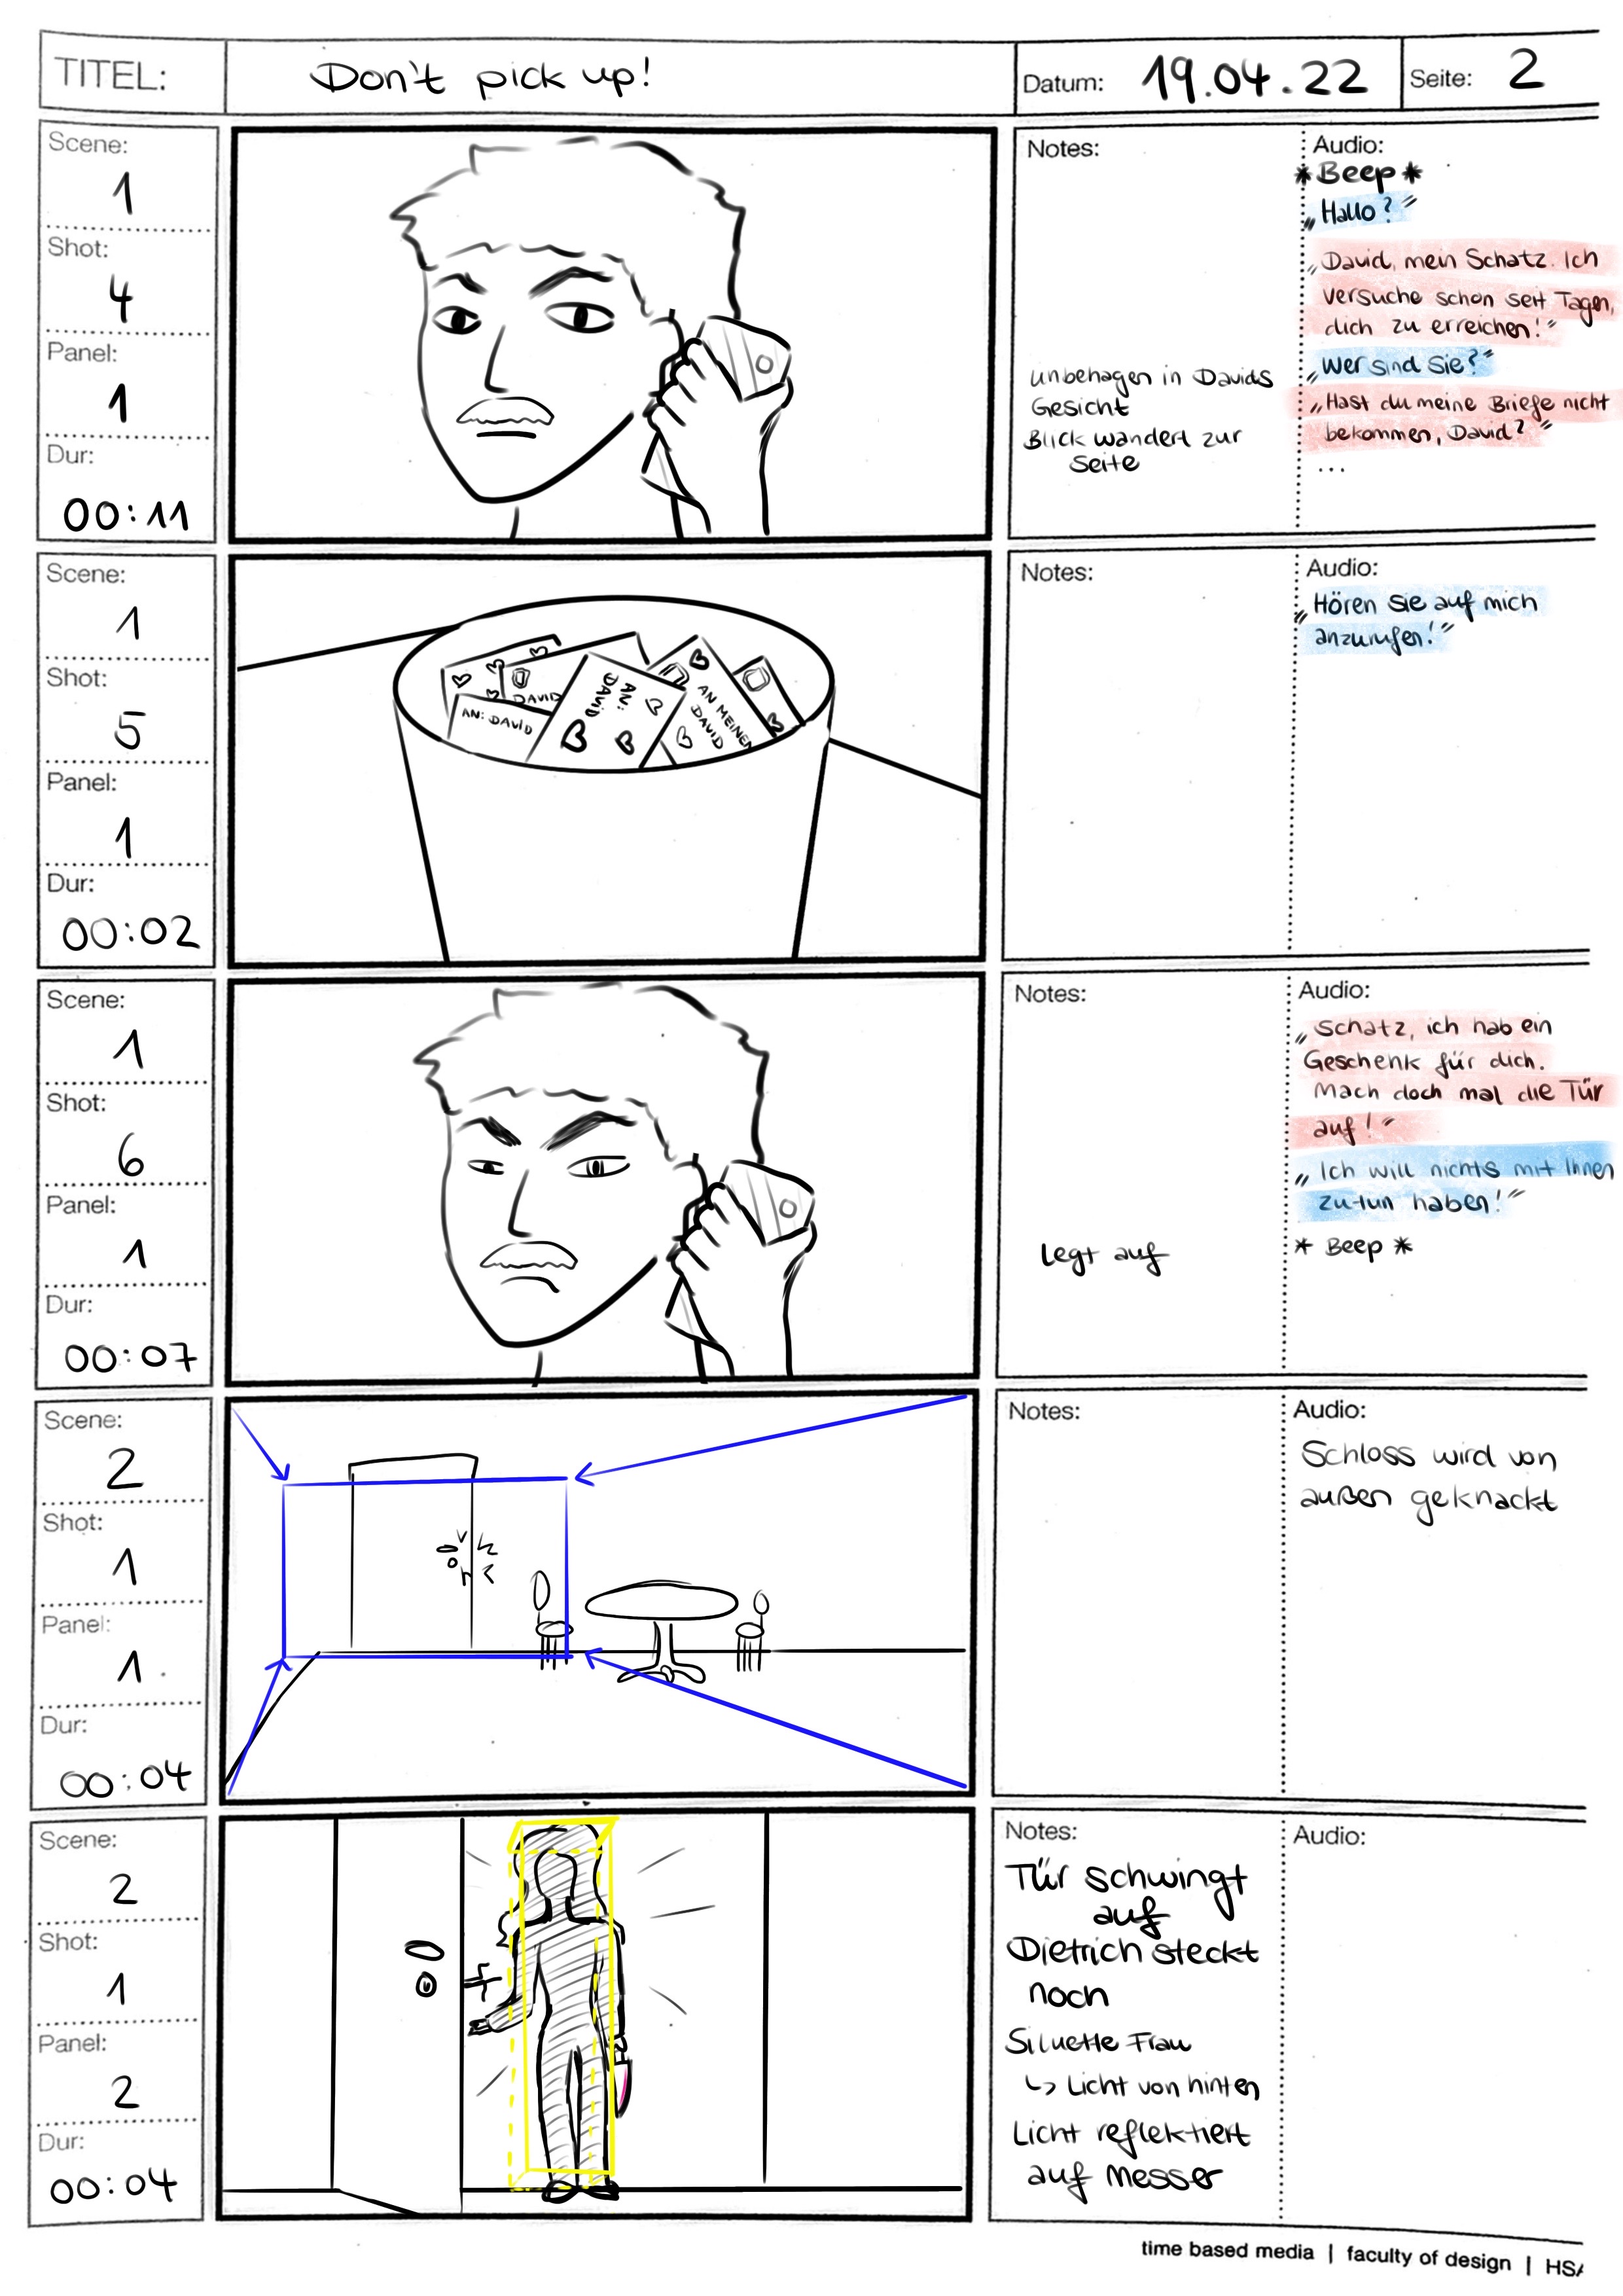 TITEL:
Don't pick up!
Datum: 19.04.22
Seite: 2
Scene:
1
Shot:
4
Panel:
1
Dur:
00:11
Notes:
unbehagen in Davids
Gesicht
Blick wandert zur
Seite
Audio:
*Beep*
„Hallo?"
„David, mein Schatz. Ich
versuche schon seit Tagen,
dich zu erreichen!"
„Wer sind Sie?"
„Hast du meine Briefe nicht
bekommen, David?"
...
Scene:
1
Shot:
5
Panel:
1
Dur:
00:02
DAVID
AN: DAVID
AN:
DAVID
AN MEINEN
DAVID
Notes:
Audio:
„Hören Sie auf mich
anzurufen!"
Scene:
1
Shot:
6
Panel:
1
Dur:
00:07
Notes:
Legt auf
Audio:
„Schatz, ich hab ein
Geschenk für dich.
Mach doch mal die Tür
auf!"
„Ich will nichts mit Ihnen
zu tun haben!"
* Beep *
Scene:
2
Shot:
1
Panel:
1
Dur:
00:04
Notes:
Audio:
Schloss wird von
außen geknackt
Scene:
2
Shot:
1
Panel:
2
Dur:
00:04
Notes:
Tür schwingt
auf
Dietrich steckt
noch
Siluette Frau
↳ Licht von hinten
Licht reflektiert
auf Messer
Audio:
time based media | faculty of design | HSA